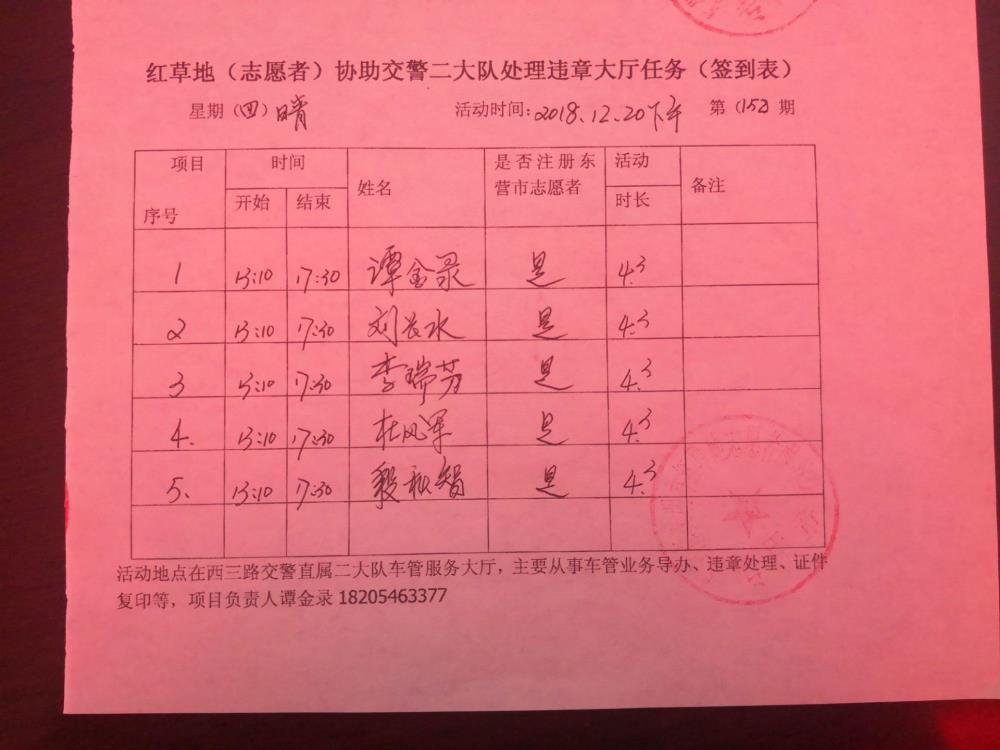 红草地（志愿者）协助交警二大队处理违章大厅任务（签到表）
星期（四）晴 活动时间：2018.12.20下午 第（152）期
项目 时间 姓名 是否注册东 活动 备注
营市志愿者
序号 开始 结束 时长
1 13:10 17:30 谭金录 是 4.3
2 13:10 17:30 刘长水 是 4.3
3 13:10 17:30 李瑞芳 是 4.3
4. 13:10 17:30 杜风军 是 4.3
5. 13:10 17:30 秋智 是 4.3
活动地点在西三路交警直属二大队车管服务大厅，主要从事车管业务导办、违章处理、证件
复印等，项目负责人谭金录 18205463377